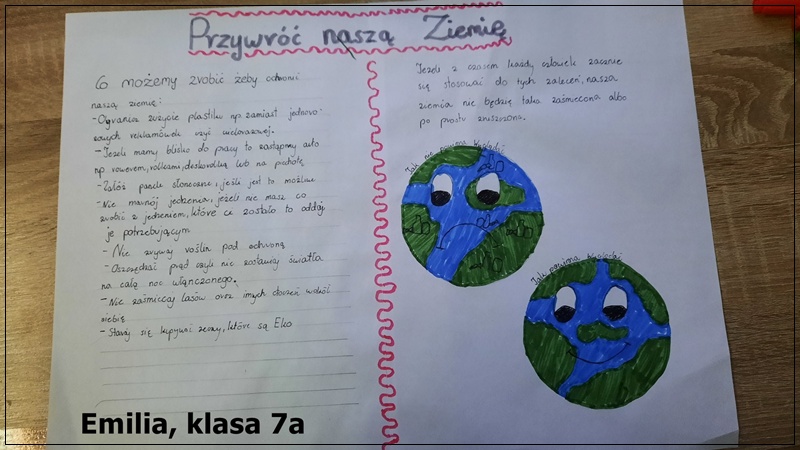 Przywróć naszą Ziemię
Co możemy zrobić żeby ochronić
naszą ziemię:
- Ogranicz zużycie plastiku np. zamiast jednorazo-
wych reklamówek użyć wielorazowej.
- Jeżeli mamy blisko do pracy to zastąpmy auto
np rowerem, rolkami, deskorolką lub na piechotę
- Załóż panele słoneczne, jeśli jest to możliwe
- Nie marnuj jedzenia, jeżeli nie masz co
zrobić z jedzeniem, które ci zostało to oddaj
je potrzebującym
- Nie zrywaj roślin pod ochroną
- Oszczędzać prąd czyli nie zostawiaj światła
na całą noc włączonego.
- Nie zaśmiecaj lasów oraz innych otoczeń wokół
siebie
- Staraj się kupywać rzeczy, które są Eko
Jeżeli z czasem każdy człowiek zacznie
się stosować do tych zaleceń, nasza
ziemia nie będzie taka zaśmiecona albo
po prostu zniszczona.
Jak nie powinna wyglądać
Jak powinna wyglądać
Emilia, klasa 7a